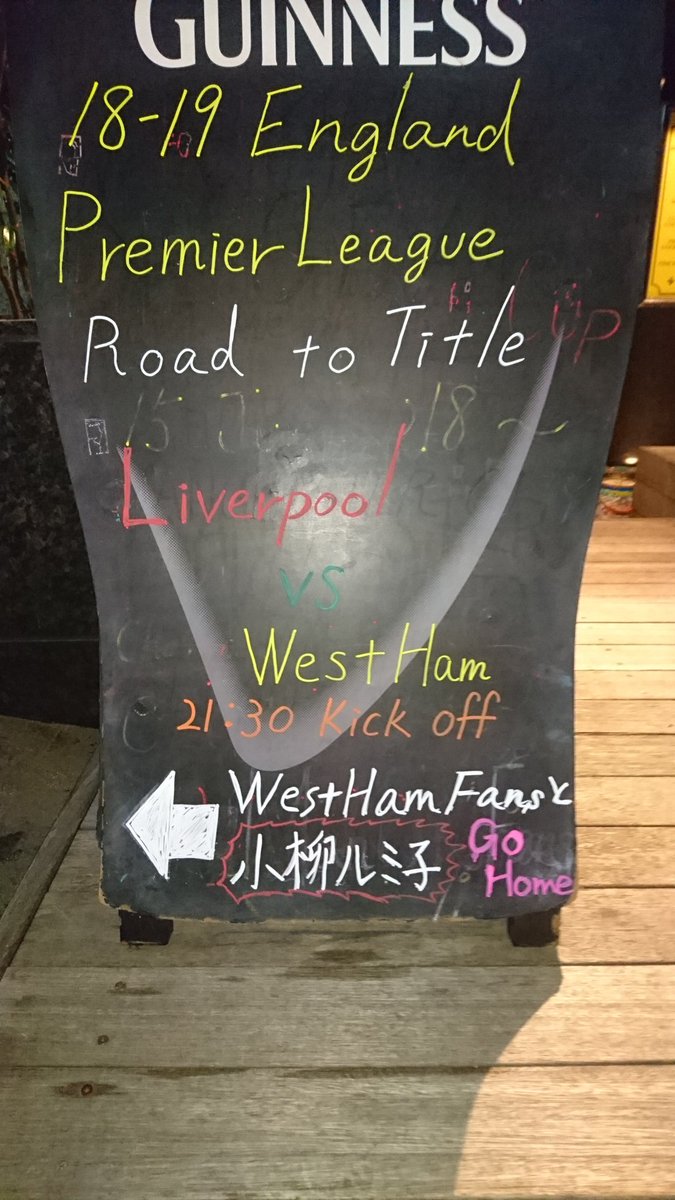 GUINNESS
18-19 England
Premier League
Road to Title
UP
Liverpool
vs
West Ham
21:30 Kick off
West Ham Fansと
小柳ルミ子
Go
Home